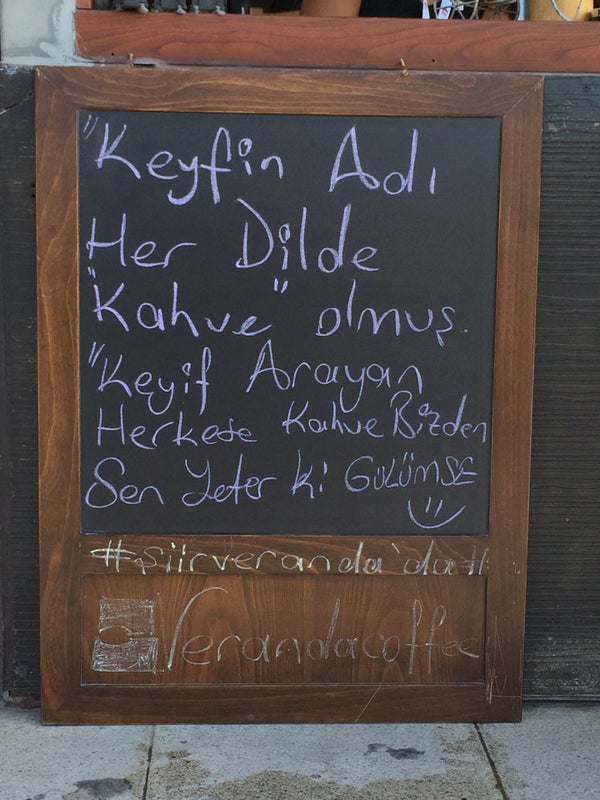 "Keyfin Adı
Her Dilde
"Kahve" olmuş.
"Keyif Arayan
Herkese Kahve Bizden
Sen Yeter ki GÜLÜMSE
#şiirveranda'da#
Verandacoffee